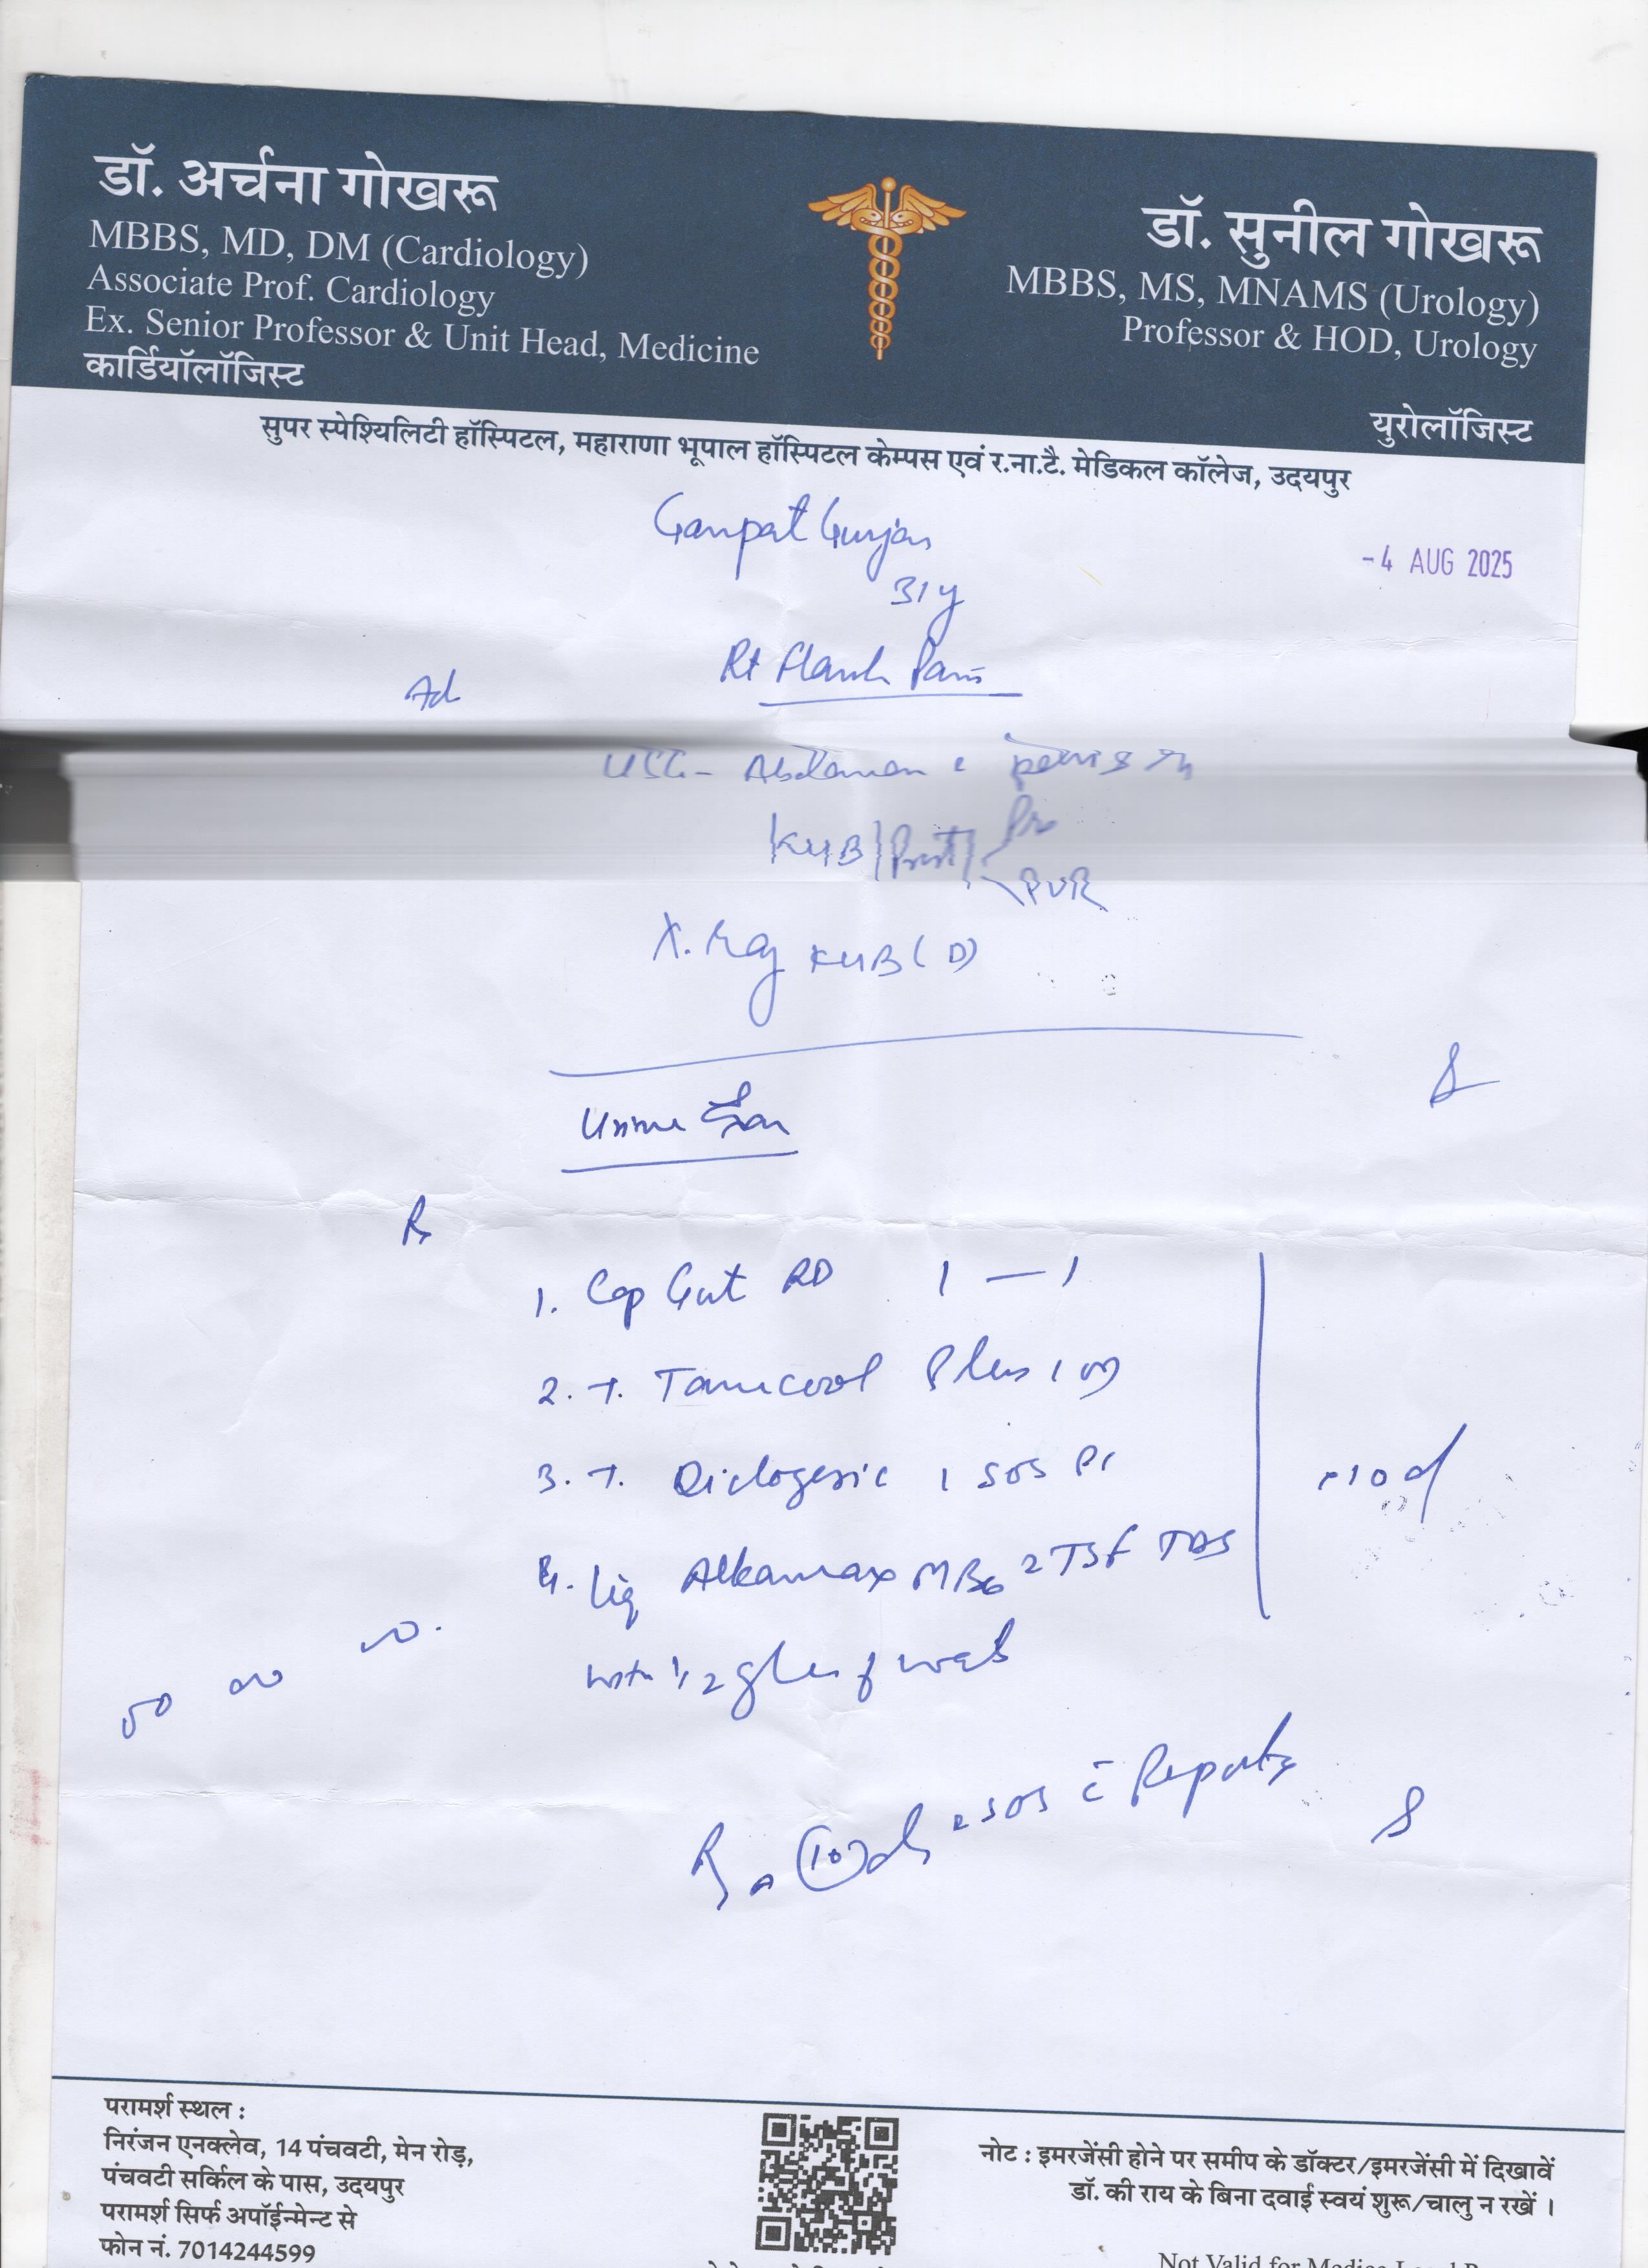 डॉ. अर्चना गोखरू
MBBS, MD, DM (Cardiology)
Associate Prof. Cardiology
Ex. Senior Professor & Unit Head, Medicine
कार्डियॉलॉजिस्ट
डॉ. सुनील गोखरू
MBBS, MS, MNAMS (Urology)
Professor & HOD, Urology
युरोलॉजिस्ट
सुपर स्पेश्यिलिटी हॉस्पिटल, महाराणा भूपाल हॉस्पिटल केम्पस एवं र.ना.टै. मेडिकल कॉलेज, उदयपुर
Ganpat Gurjar
-4 AUG 2025
31y
Rt Flank Pain
Ad
USG - Abdomen
KUB/Prost/ Pre
PVR
X.Ray KUB (D)
Urine
Rx
1. Cap Gut RD 1 — 1
2. T. Plus 1
3. T. Diclogesic 1 SOS
4. Liq Alkamax MB6 2 TSF TDS
10d
with 1/2 glass of water
(10) d SOS c̄ Reports
परामर्श स्थल :
निरंजन एनक्लेव, 14 पंचवटी, मेन रोड़,
पंचवटी सर्किल के पास, उदयपुर
परामर्श सिर्फ अपॉईन्मेन्ट से
फोन नं. 7014244599
नोट : इमरजेंसी होने पर समीप के डॉक्टर/इमरजेंसी में दिखावें
डॉ. की राय के बिना दवाई स्वयं शुरू/चालु न रखें ।
Not Valid for